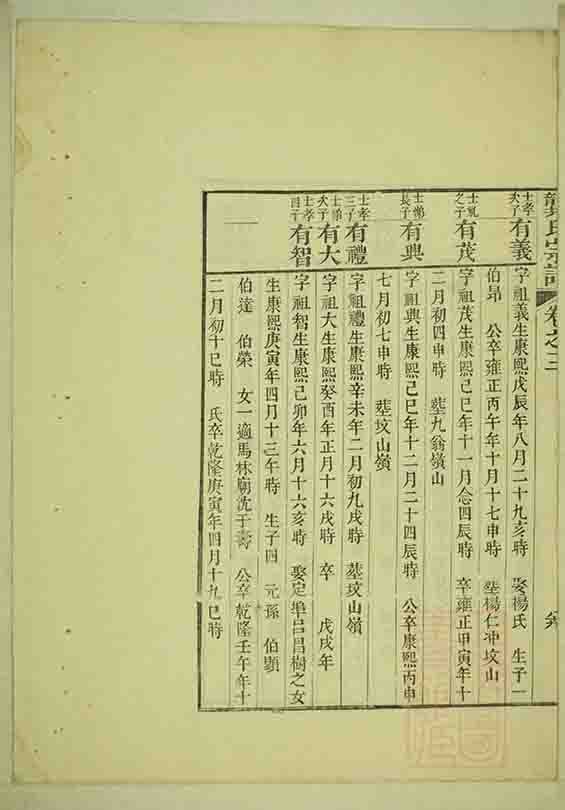 氏宗譜 卷之三
士孝次子 有義 字祖義生康熙戊辰年八月二十九亥時 娶楊氏 生子一
伯昂 公卒雍正丙午年十月十七申時 塟楊仁冲坟山
之子 有茂 字祖茂生康熙己巳年十一月念四辰時 卒雍正甲寅年十
二月初四申時 塟九翁嶺山
士悌長子 有興 字祖興生康熙己巳年十二月二十四辰時 公卒康熙丙申
七月初七申時 塟坟山嶺
士孝三子 有禮 字祖禮生康熙辛未年二月初九戌時 塟坟山嶺
士悌次子 有大 字祖大生康熙癸酉年正月十六戌時 卒 戊戌年
士孝四子 有智 字祖智生康熙己卯年六月十六亥時 娶定埠呂昌樹之女
生康熙庚寅年四月十三午時 生子四 元孫 伯顯
伯達 伯榮 女一適馬林廟沈于壽 公卒乾隆壬午年十
二月初十巳時 氏卒乾隆庚寅年四月十九巳時